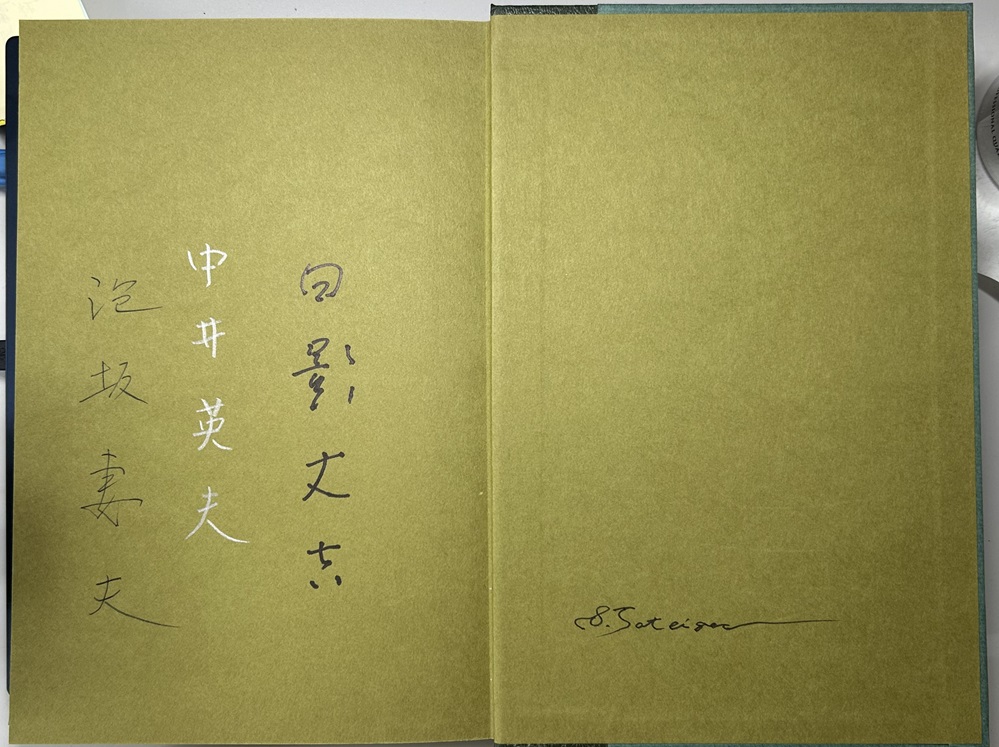 日影丈吉
中井英夫
泡坂妻夫